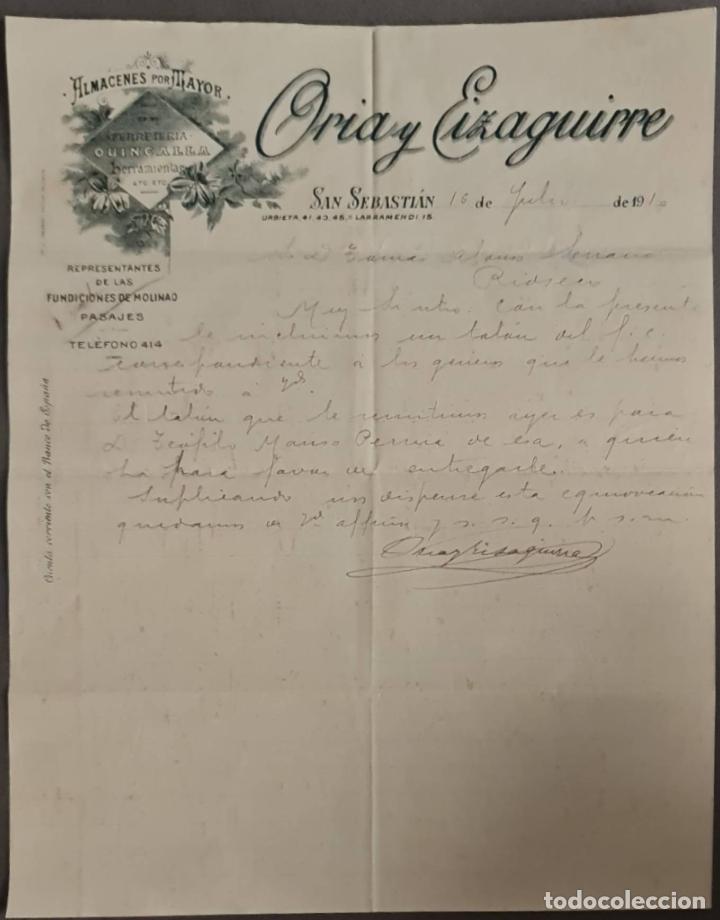 ALMACENES POR MAYOR
DE
FERRETERIA
QUINCALLA
herramientas
ETC. ETC.
Oria y Eizaguirre
SAN SEBASTIÁN 16 de Julio de 1910
URBIETA, 41, 43, 45, Y LARRAMENDI, 15.
REPRESENTANTES
DE LAS
FUNDICIONES DE MOLINAO
PASAJES
TELÉFONO 414
Cuenta corriente con el Banco de España
Sr. D. Tomás Alonso
Rioseco
Muy Sr. ntro: Con la presente
le incluimos un talón del f.c.
correspondiente a los géneros que le hemos
remitido a Vd.
El talón que le remitimos ayer es para
D. Teófilo Manso de esa, a quien
hará favor de entregarle.
Suplicando nos dispense esta equivocación
quedamos de Vd. affmos y s. s. q. b. s. m.
Oria y Eizaguirre
todocoleccion
todocoleccion.net